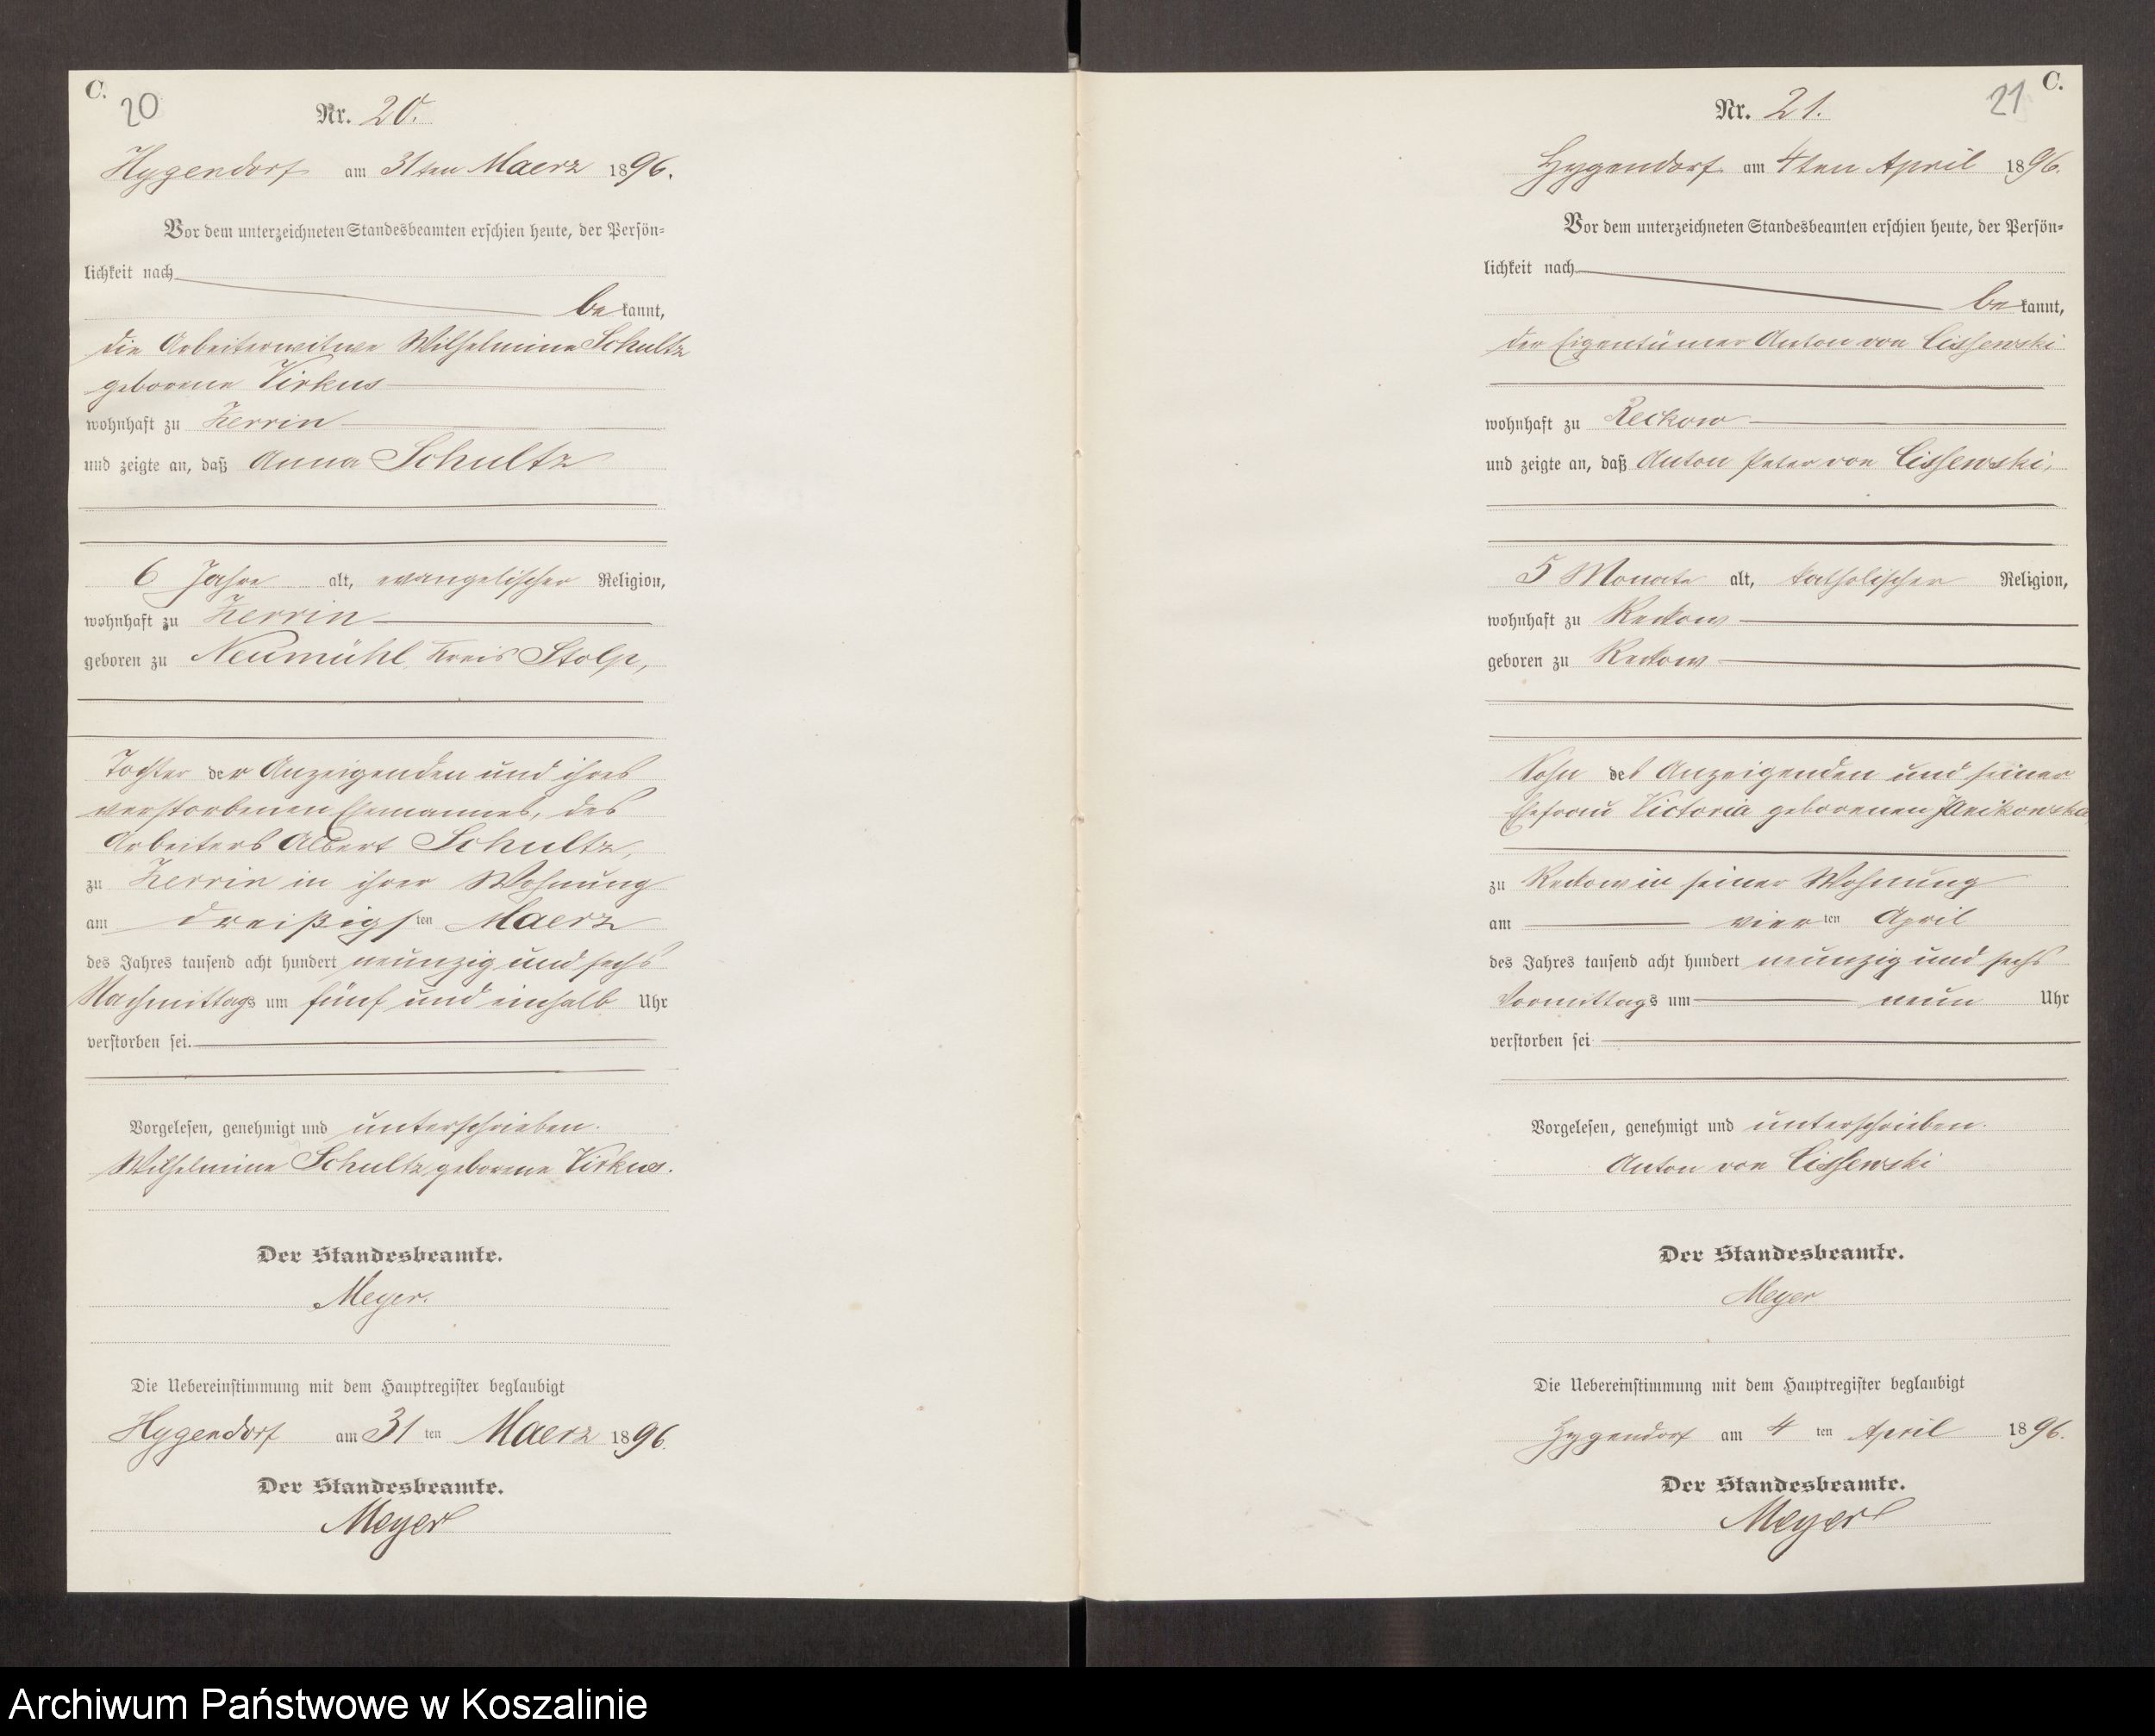 C.
20
Nr. 20.
Hygendorf am 31ten Maerz 1896.
Vor dem unterzeichneten Standesbeamten erschien heute, der Persön-
lichkeit nach
be kannt,
die Arbeiterwitwe Wilhelmine Schultz
geborene Virkus
wohnhaft zu Zerrin
und zeigte an, daß Anna Schultz
6 Jahre alt, evangelischer Religion,
wohnhaft zu Zerrin
geboren zu Neumühl, Kreis Stolp,
Tochter der Anzeigenden und ihres
verstorbenen Ehemannes, des
Arbeiters Albert Schultz,
zu Zerrin in ihrer Wohnung
am dreißigsten Maerz
des Jahres tausend acht hundert neunzig und sechs
Nachmittags um fünf und einhalb Uhr
verstorben sei.
Vorgelesen, genehmigt und unterschrieben.
Wilhelmine Schultz geborene Virkus.
Der Standesbeamte.
Meyer.
Die Uebereinstimmung mit dem Hauptregister beglaubigt
Hygendorf am 31 ten Maerz 1896.
Der Standesbeamte.
Meyer
C.
21
Nr. 21.
Hygendorf am 4ten April 1896.
Vor dem unterzeichneten Standesbeamten erschien heute, der Persön-
lichkeit nach
be kannt,
der Eigentümer Anton von Cissewski
wohnhaft zu Reckow
und zeigte an, daß Anton Peter von Cissewski,
5 Monate alt, katholischer Religion,
wohnhaft zu Reckow
geboren zu Reckow
Sohn des Anzeigenden und seiner
Ehefrau Victoria geborenen Janikowska
zu Reckow in seiner Wohnung
am vierten April
des Jahres tausend acht hundert neunzig und sechs
Vormittags um neun Uhr
verstorben sei
Vorgelesen, genehmigt und unterschrieben.
Anton von Cissewski
Der Standesbeamte.
Meyer
Die Uebereinstimmung mit dem Hauptregister beglaubigt
Hygendorf am 4 ten April 1896.
Der Standesbeamte.
Meyer
Archiwum Państwowe w Koszalinie